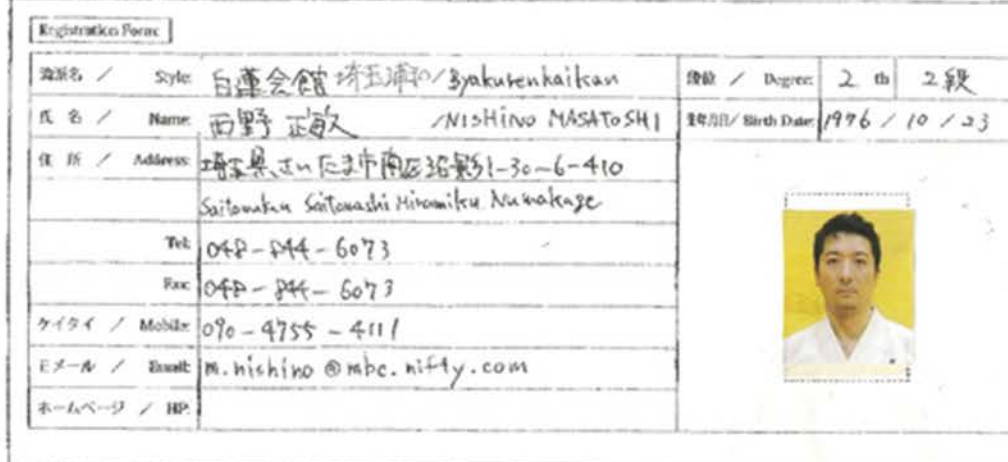 Registration Form
流派名 / Style: 白蓮会館 埼玉浦和/Byakurenkaikan
段位 / Degree: 2 th 2段
氏名 / Name: 西野 正敏 /NISHINO MASATOSHI
生年月日/ Birth Date: 1976 / 10 / 23
住所 / Address: 埼玉県さいたま市南区沼影1-30-6-410
Saitamaken Saitamashi Minamiku Numakage
Tel: 048-844-6073
Fax: 048-844-6073
ケイタイ / Mobile: 090-4755-4111
Eメール / Email: m.nishino@mbc.nifty.com
ホームページ / HP: